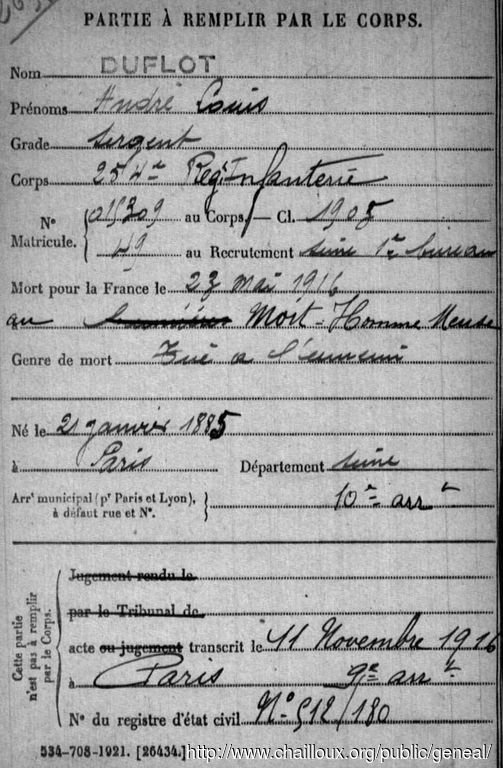 PARTIE À REMPLIR PAR LE CORPS.
Nom DUFLOT
Prénoms André Louis
Grade sergent
Corps 254e Regt Infanterie
Nº Matricule. 015309 au Corps. — Cl. 1905
49 au Recrutement Seine 1er bureau
Mort pour la France le 23 mai 1916
au Mort-Homme Meuse
Genre de mort Tué a l'ennemi
Né le 21 janvier 1885
à Paris Département Seine
Arrt municipal (pr Paris et Lyon),
à défaut rue et Nº.
10e arrt
Cette partie
n'est pas à remplir
par le Corps.
Jugement rendu le
par le Tribunal de
acte ou jugement transcrit le 11 Novembre 1916
à Paris 9e arrt
Nº du registre d'état civil Nº 512/180
534-708-1921. [26434.]
http://www.chailloux.org/public/geneal/